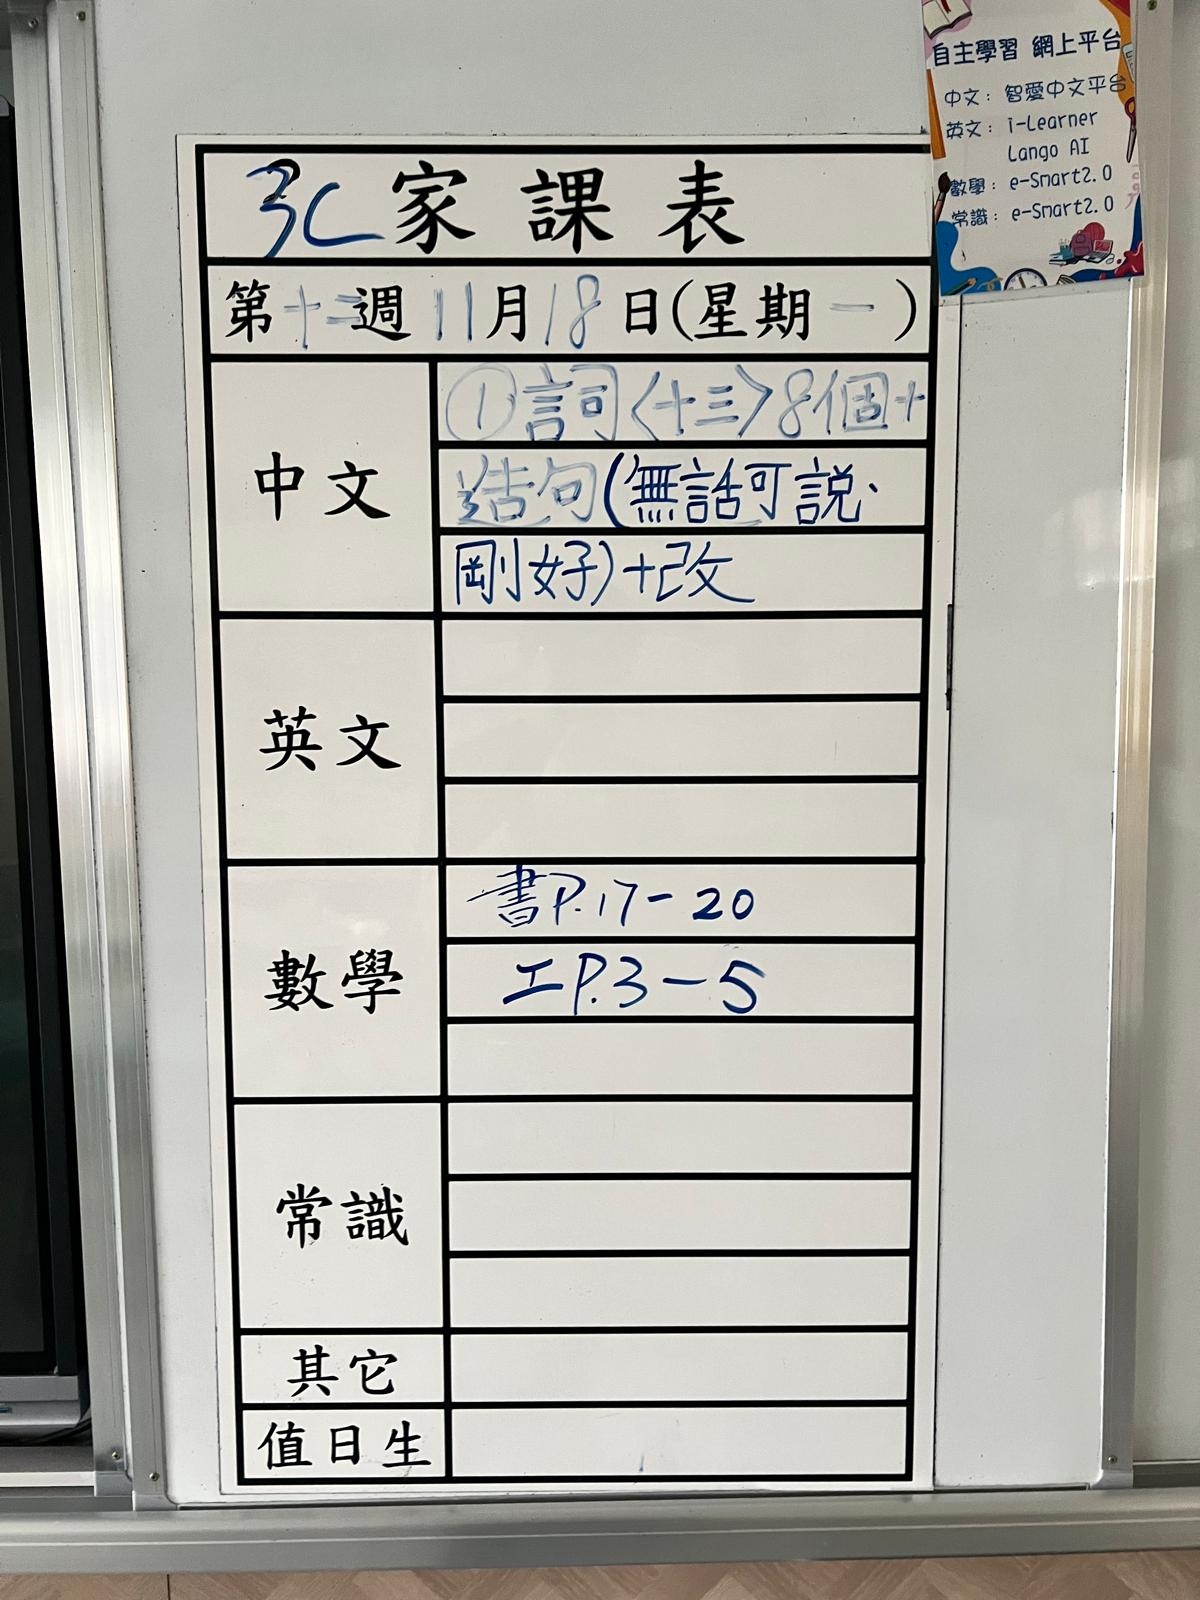 自主學習 網上平台
中文：智愛中文平台
英文：i-Learner
Lango AI
數學：e-Smart2.0
常識：e-Smart2.0
3C家課表
第十二週 11月18日(星期一)
中文
①詞〈十三〉8個+
造句(無話可説、
剛好)+改
英文
數學
書P.17-20
工P.3-5
常識
其它
值日生